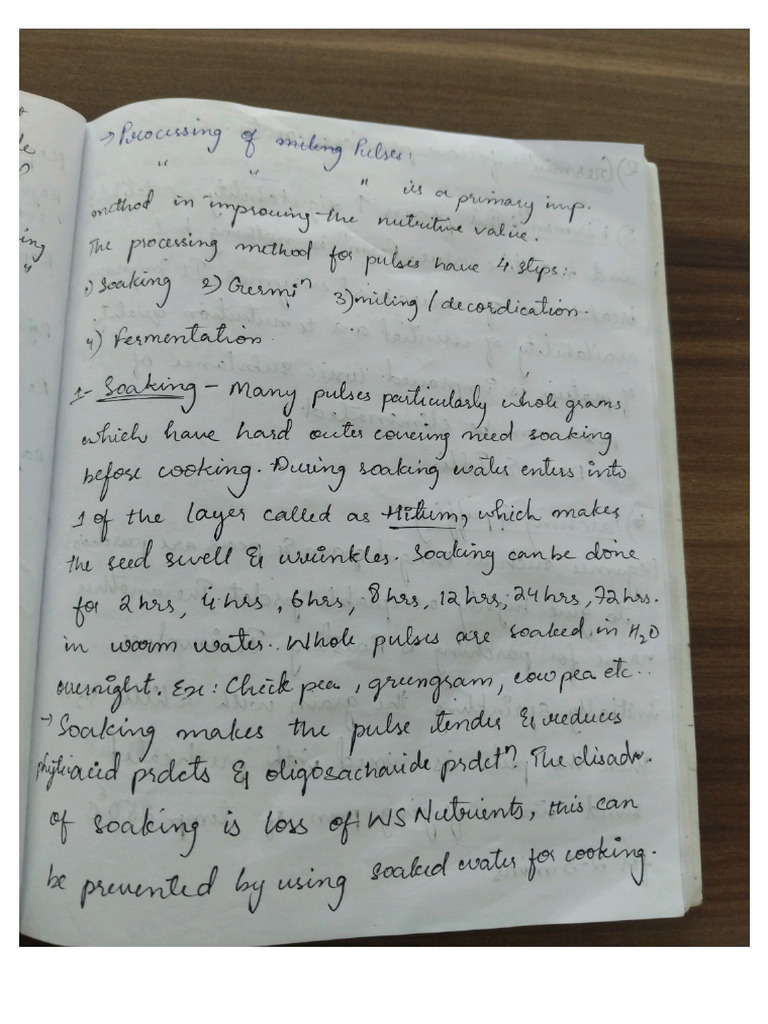 → Processing of miling Pulses:
" " " is a primary imp.
method in improving the nutritive value.
The processing method for pulses have 4 steps:
1) Soaking 2) Germiⁿ 3) miling / decordication.
4) Fermentation
1- Soaking - Many pulses particularly whole grams
which have hard outer covering need soaking
before cooking. During soaking water enters into
1 of the layer called as Hilum, which makes
the seed swell & wrinkles. Soaking can be done
for 2 hrs, 4 hrs, 6 hrs, 8 hrs, 12 hrs, 24 hrs, 72 hrs.
in warm water. Whole pulses are soaked in H₂O
overnight. Ex: Chick pea, greengram, cow pea etc..
→ Soaking makes the pulse tender & reduces
phytic acid prdcts & oligosacharide prdctⁿ. The disadv.
of soaking is loss of WS Nutrients, this can
be prevented by using soaked water for cooking.